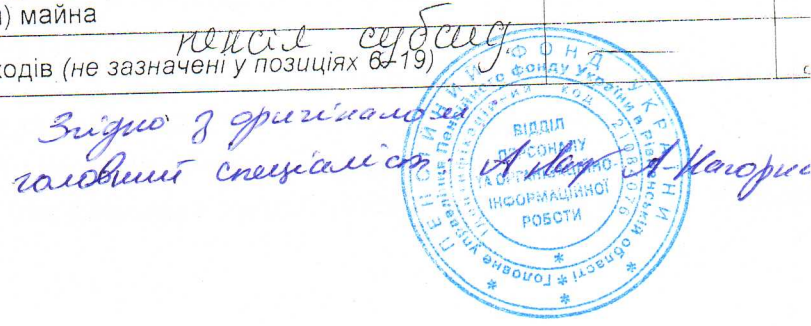 ) майна
пенсія субсид.
ходів (не зазначені у позиціях 6-19)
Згідно з оригіналом
головний спеціаліст А. Нагорна
ПЕНСІЙНИЙ ФОНД УКРАЇНИ
Головне управління Пенсійного фонду України в Рівненській області
Ідентифікаційний код 21084076
ВІДДІЛ
ПЕРСОНАЛУ
ТА ОРГАНІЗАЦІЙНО-
ІНФОРМАЦІЙНОЇ
РОБОТИ